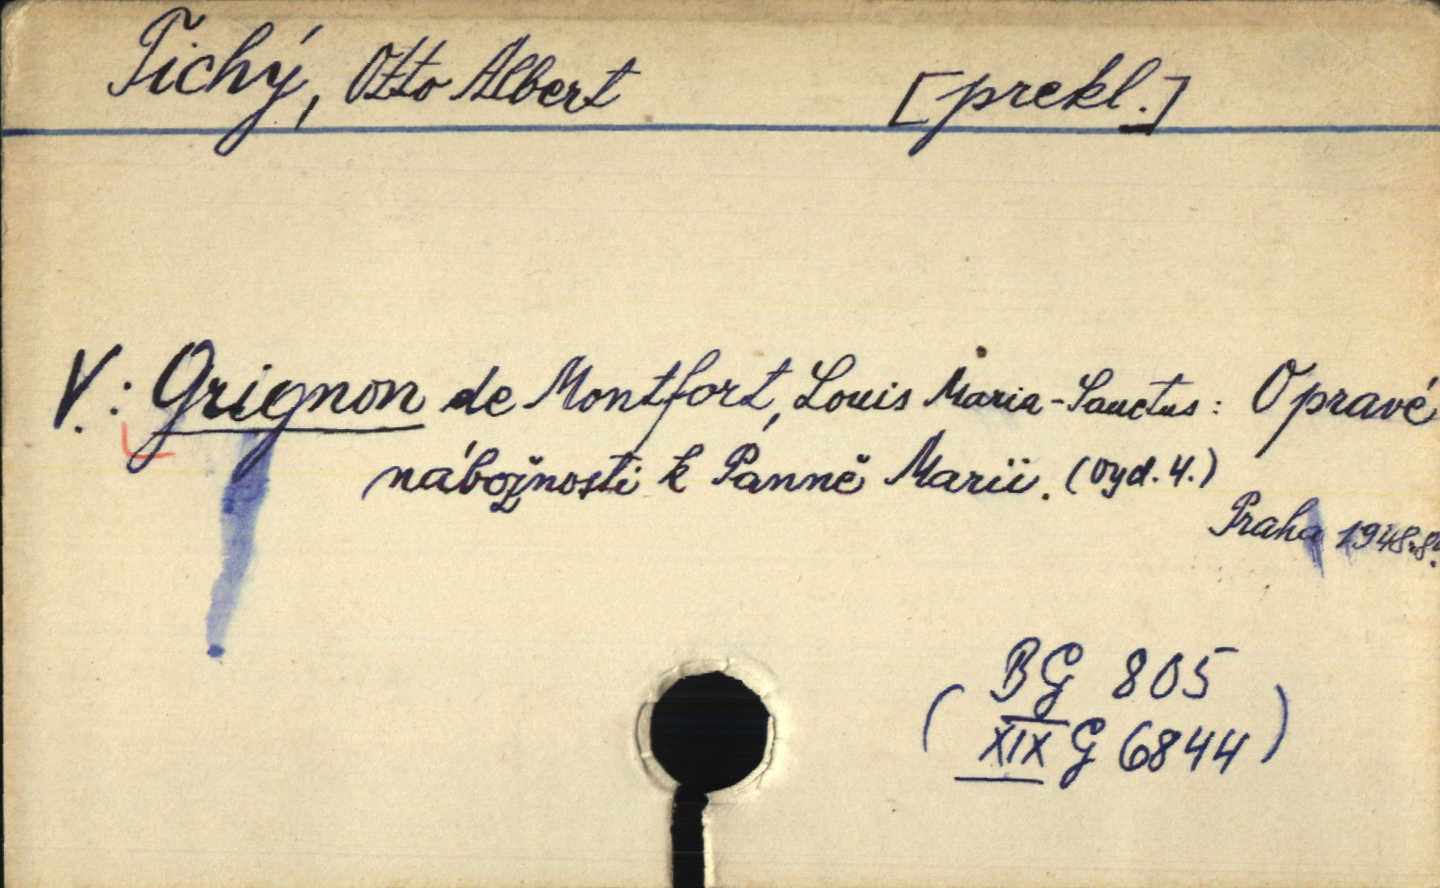 Tichý, Otto Albert [prekl.]
V.: Grignon de Montfort, Louis Maria-Sanctus: O pravé
nábožnosti k Panně Marii. (Vyd. 4.)
Praha 1948. 8°.
BG 805
(XIX G 6844)